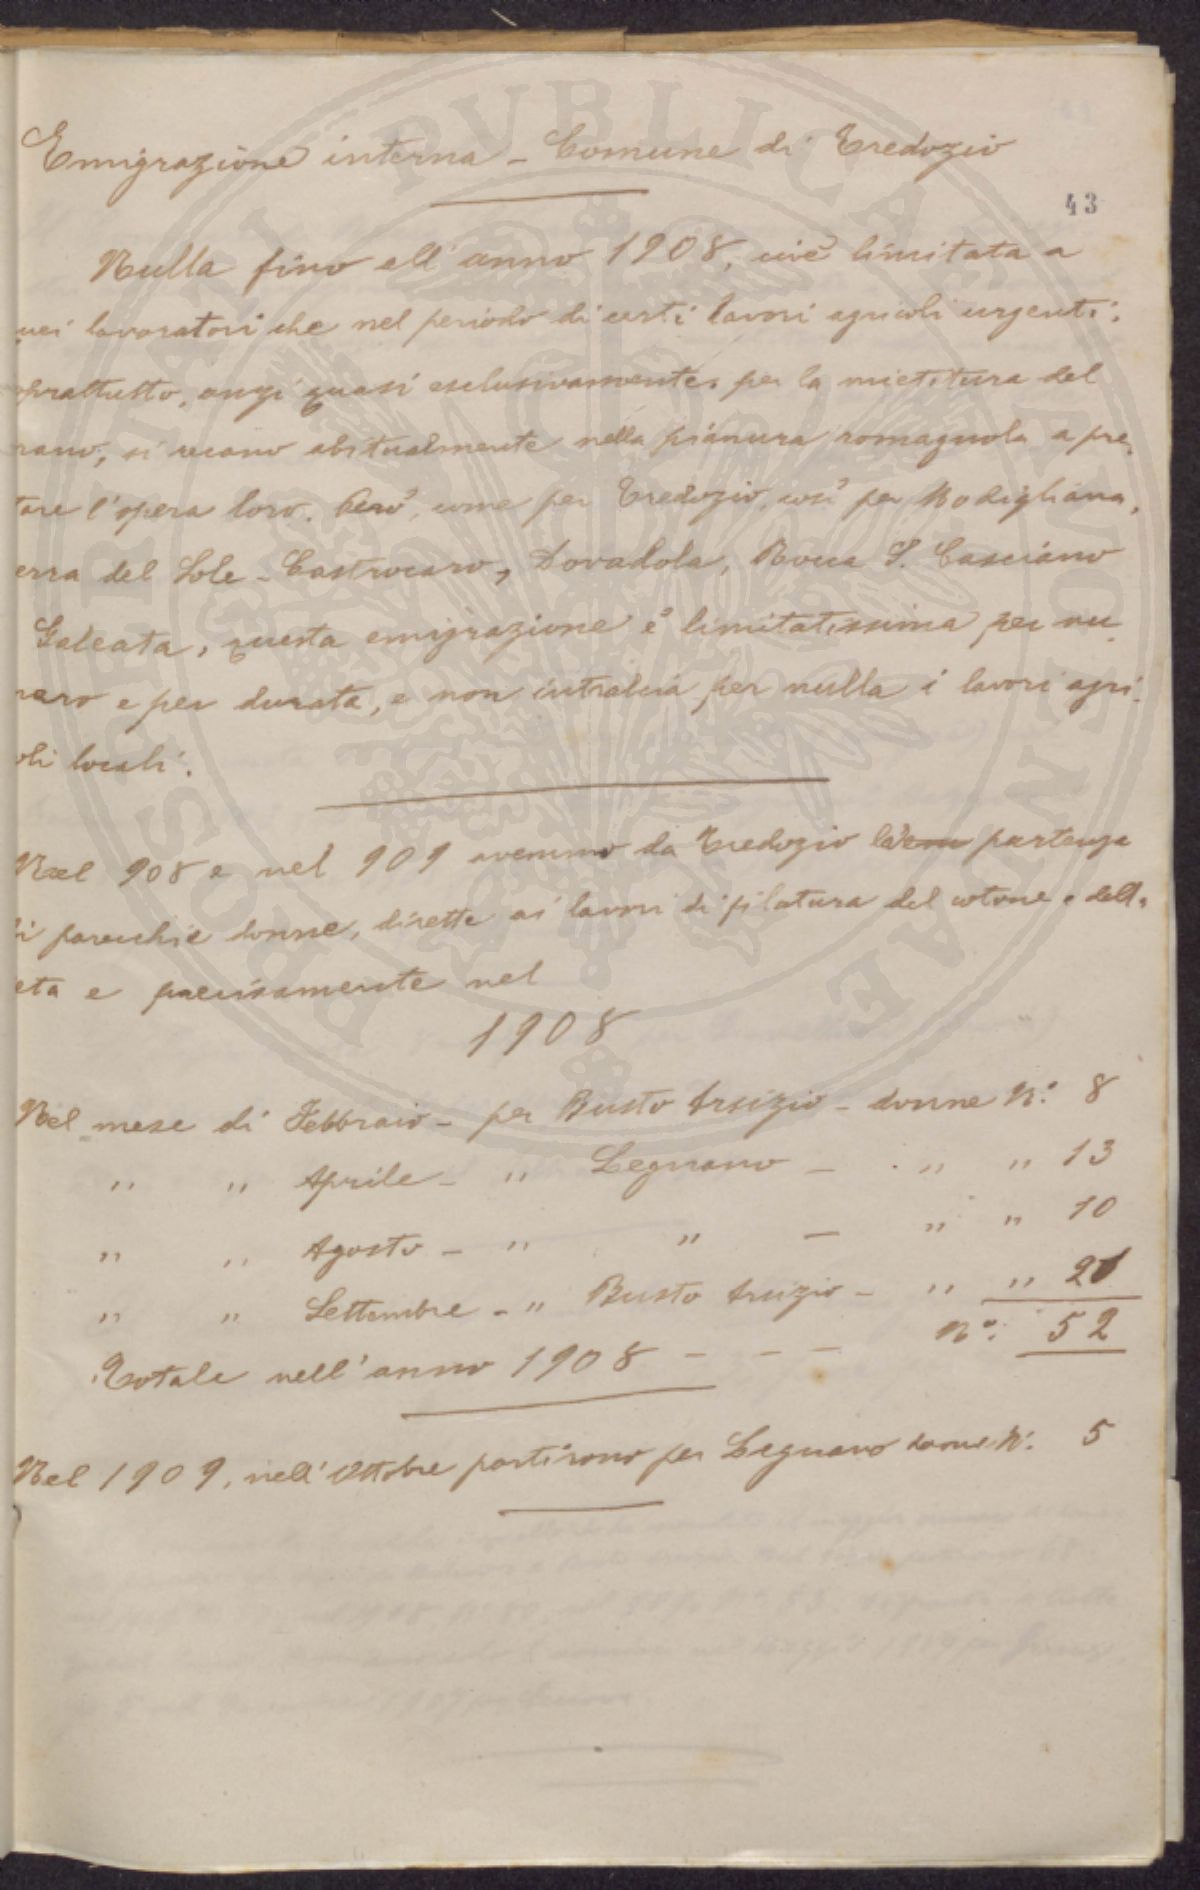 PROSPERITATI PVBLICAE AVGENDAE
Emigrazione interna - Comune di Tredozio
43
Nulla fino all'anno 1908, cioè limitata a
uei lavoratori che nel periodo di certi lavori agricoli urgenti,
oprattutto, anzi quasi esclusivamente, per la mietitura del
rano, si recano abitualmente nella pianura romagnola a pre-
tare l'opera loro. Però, come per Tredozio, così per Modigliana,
erra del Sole - Castrocaro, Dovadola, Rocca S. Casciano
Galeata, questa emigrazione è limitatissima per nu-
mero e per durata, e non intralcia per nulla i lavori agri-
oli locali.
Nel 908 e nel 909 avemmo da Tredozio partenza
di parecchie donne, dirette ai lavori di filatura del cotone e della
eta e precisamente nel
1908
Nel mese di Febbraio - per Busto Arsizio - donne N.° 8
" " Aprile - " Legnano - " " 13
" " Agosto - " " - " " 10
" " Settembre - " Busto Arsizio - " " 21
Totale nell'anno 1908 - - - N.° 52
Nel 1909, nell'Ottobre partirono per Legnano donne N. 5